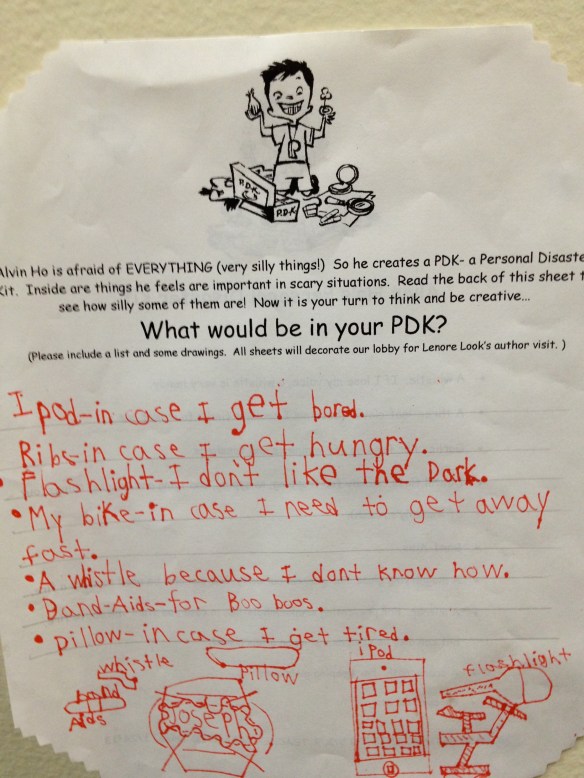 P.D.K.
P.D.K
Alvin Ho is afraid of EVERYTHING (very silly things!) So he creates a PDK- a Personal Disaste
Kit. Inside are things he feels are important in scary situations. Read the back of this sheet t
see how silly some of them are! Now it is your turn to think and be creative...
What would be in your PDK?
(Please include a list and some drawings. All sheets will decorate our lobby for Lenore Look's author visit. )
Ipod-in case I get bored.
Ribs-in case I get hungry.
• Flashlight-I don't like the Dark.
•My bike-in case I need to get away
fast.
•A whistle because I dont know how.
• Band-Aids-for Boo boos.
• pillow-in case I get tired.
whistle
pillow
iPod
flashlight
band
Aids
Joseph